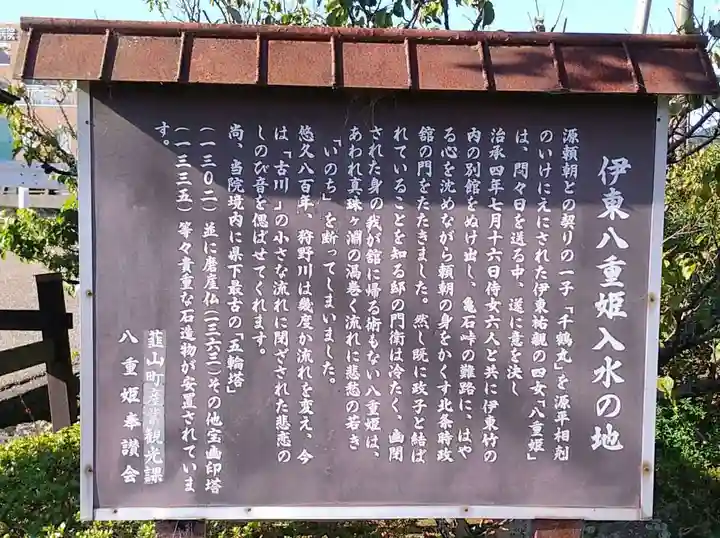 伊東八重姫入水の地
源頼朝との契りの一子「千鶴丸」を源平相剋
のいけにえにされた伊東祐親の四女「八重姫」
は、悶々日を送る中、遂に意を決し
治承四年七月十六日侍女六人と共に伊東竹の
内の別館をぬけ出し、亀石峠の難路に、はや
る心を沈めながら頼朝の身をかくす北条時政
舘の門をたたきました。然し既に政子と結ば
れていることを知る邸の門衛は冷たく、幽閉
された身の我が舘に帰る術もない八重姫は、
あわれ真珠ヶ淵の渦巻く流れに悲愁の若き
「いのち」を断ってしまいました。
悠久八百年、狩野川は幾度か流れを変え、今
は、「古川」の小さな流れに閉ざされた悲恋の
しのび音を偲ばせてくれます。
尚、当院境内に県下最古の「五輪塔」
(一三〇二)並に磨崖仏(一三六三)その他宝画印塔
(一三三五)等々貴重な石造物が安置されていま
す。
韮山町産業観光課
八重姫奉讃会